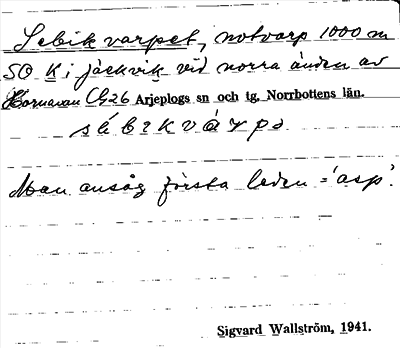 Sebikvarpet, notvarp 1000 m
SO K i Jäckvik vid norra änden av
Hornavan Ch26 Arjeplogs sn och tg, Norrbottens län.
Man ansåg första leden = 'asp'.
Sigvard Wallström, 1941.